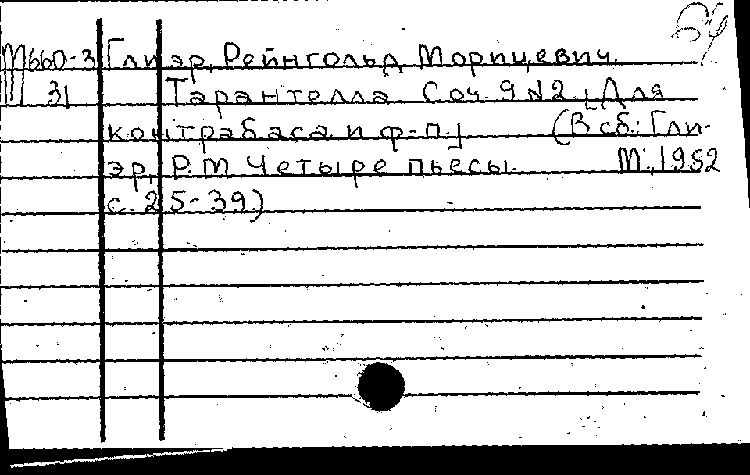 М660-3 Глиэр, Рейнгольд Морицевич.
31 Тарантелла. Соч. 9 №2. [Для
контрабаса и ф-п.] (В сб.: Гли-
эр, Р.М. Четыре пьесы. М., 1952
с. 25-39)